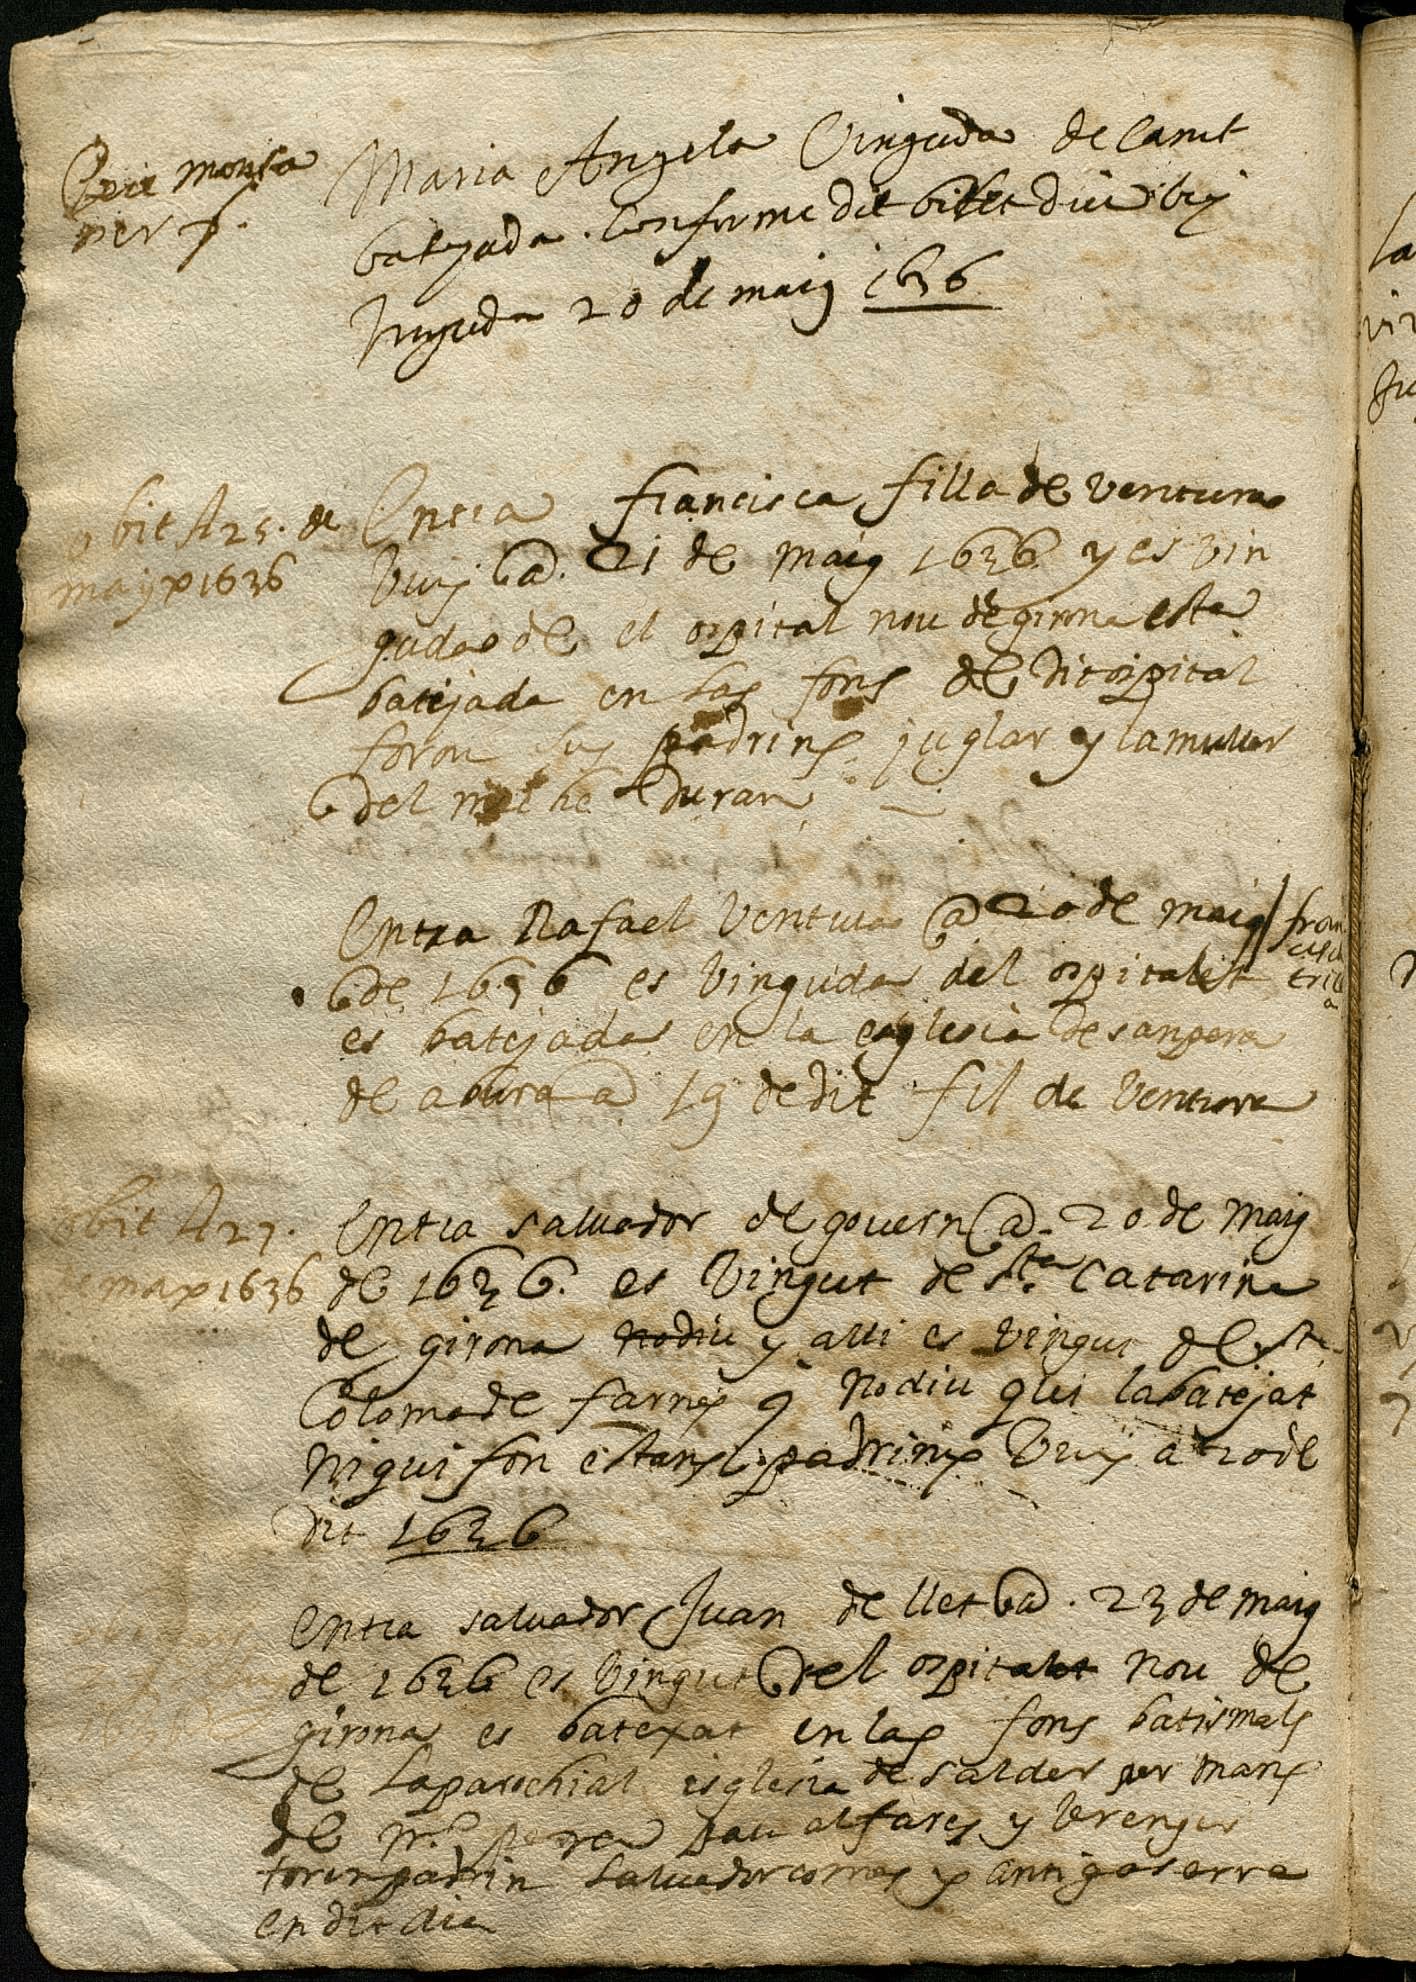 Maria Angela Vinguda de Canet
batejada. Conforme dit billet diu vuy
Vinguda 20 de maig 1636
obit A 25. de
mayx 1636
Entra francisca filla de ventura
vuy a 21 de maig 1636 y es vin
guda de el ospital nou de girona esta
batejada en las fons de dit ospital
foron sus padrins juglar y la muller
del duran
Entra Rafael Ventura a 20 de maig
de 1636 es vinguda del ospitalet
es batejada en la esglesia de sanpera
de a 19 de dit fil de Ventura
fran
cisca
obit A 27.
de max 1636
Entra saluador de govern a. 20 de maig
de 1636. es vingut de sta Catarina
de girona nodiu y alli es vingut de sta
Coloma de farnes y no diu qui la batejat
ni qui fon estans padrins vuy a 20 de
dit 1636
Entra saluador Juan de llet a. 23 de maig
de 1636 es vingut del ospitalet nou de
girona es batexat en las fons batismals
de la parochial esglesia de salder per mans
de pere pau alfares y berenger
foren padrin saluador comas y antiga serra
en dit dia